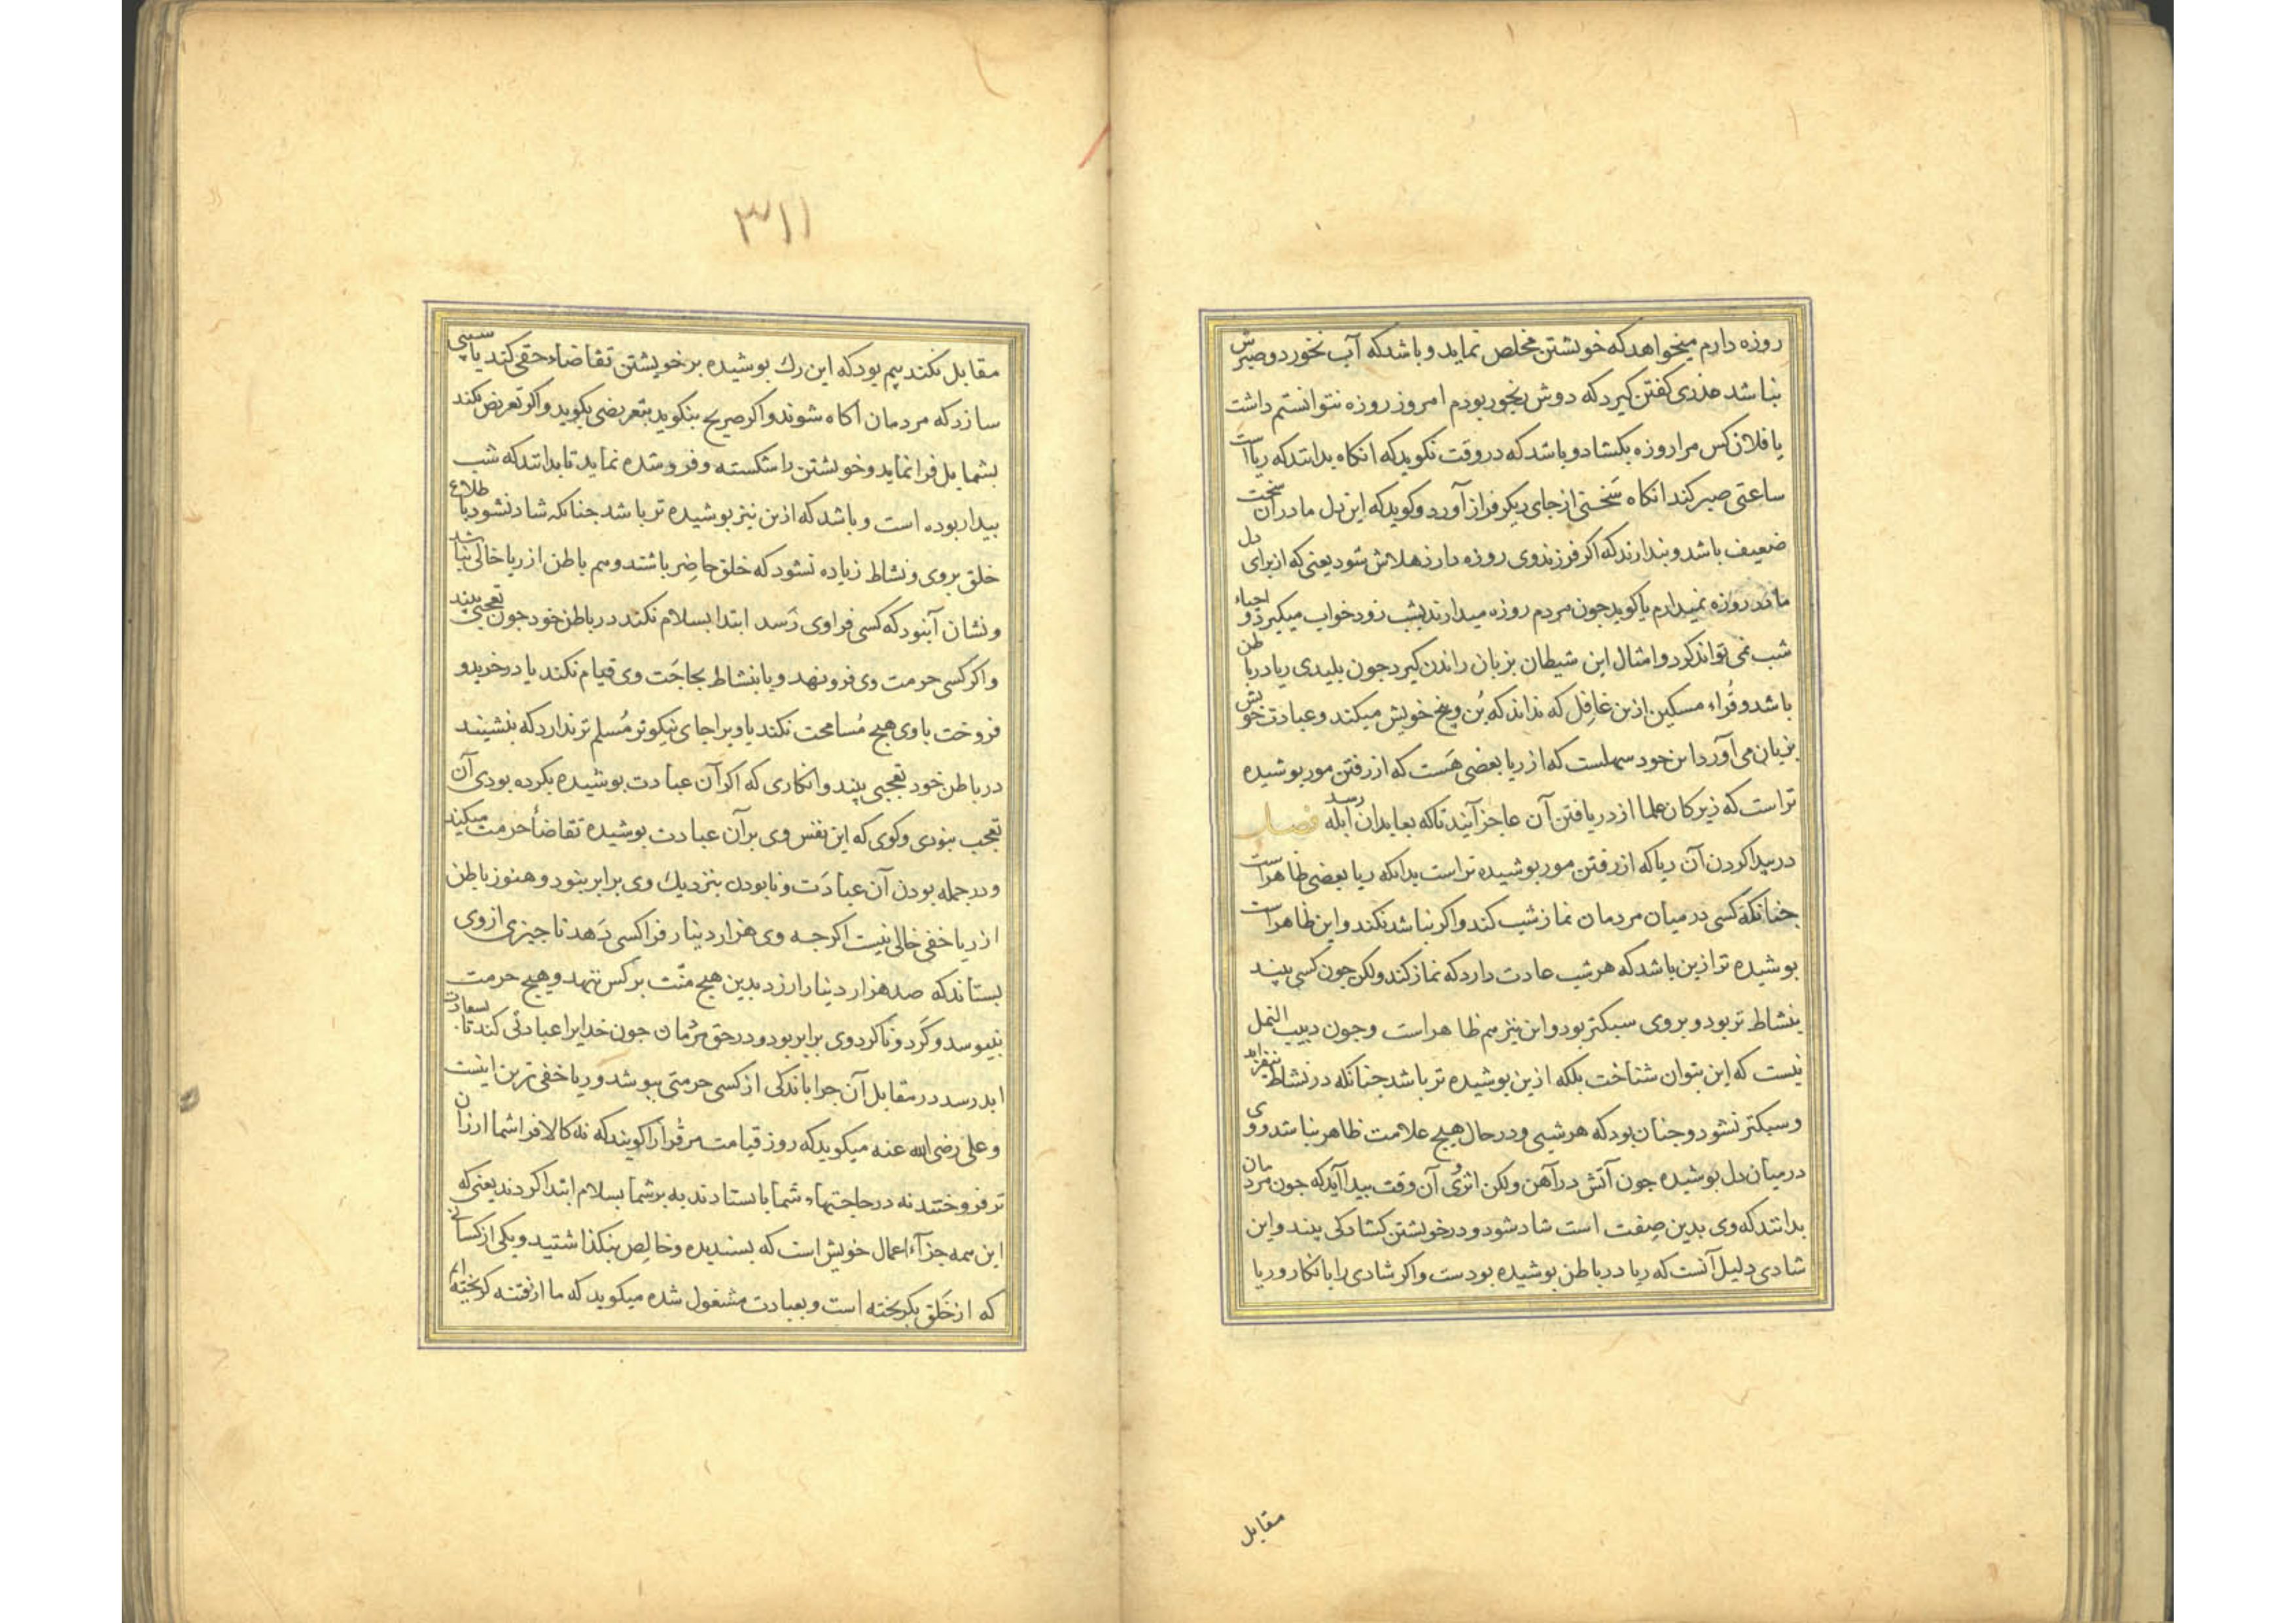 روزه دارم میخواهد که خویشتن مخلص نماید و باشد که آب نخورد و صبرش
نباشد عذری گفتن گیرد که دوش رنجور بودم امروز روزه نتوانستم داشت
یا فلان کس مرا روزه بکشاد و باشد که در وقت نکوید که انکاه بدانند که ریا است
ساعتی صبر کند انکاه سَخنی از جای دیکر فراز آورد و کوید که این دل مادران سخت
ضعیف باشد و بندارند که اکر فرزند وی روزه دارد هلاش شود یعنی که از برای دل
مادر روزه نمیدارم یا کوید جون مردم روزه میدارند بشب زود خواب میکیرد و احیاء
شب نمی تواند کرد و امثال این شیطان بزبان راندن کیرد جون بلیدی ریا در باطن
باشد و قُراء مسکین ازین غافِل که نداند که بُن و بیخ خویش میکند و عبادت خویش
بزیان می آورد این خود سهلست که از ریا بعضی هَست که از رفتن مور بوشیده
تر است که زیرکان علما از دریافتن آن عاجز آیند تا که بعابدان ابله رسد فصل
در پیدا کردن آن ریا که از رفتن مور بوشیده تر است بدانکه ریا بعضی ظاهر است
جنانکه کسی در میان مردمان نماز شب کند و اکر نباشد نکند و این ظاهر است
بوشیده تر ازین باشد که هر شب عادت دارد که نماز کند ولکن جون کسی بیند
بنشاط تر بود و بر وی سبکتر بود و این نیز هم ظاهر است و جون دبیب النمل
نیست که این بتوان شناخت بلکه ازین بوشیده تر باشد جنانکه در نشاط نیفزاید
و سبکتر نشود و جنان بود که هر شبی و در حال هیچ علامت ظاهر نباشد و وی
در میان دل بوشیده جون آتش در آهن ولکن اثر وی آن وقت پیدا آید که جون مردمان
بدانند که وی بدین صِفت است شاد شود و در خویشتن کشادکی بیند و این
شادی دلیل آنست که ریا در باطن بوشیده بودست و اکر شادی را بانکار و ریا
مقابل
٣١١
مقابل نکند بیم بود که این رک بوشیده بر خویشتن تقاضاء حقی کند یا سببی
سازد که مردمان آکاه شوند و اکر صریح بنکوید بتعریضی بکوید و اکر تعریض نکند
بشمایل فرا نماید و خویشتن را شکسته و فروشده نماید تا بدانند که شب
بیدار بوده است و باشد که ازین نیز بوشیده تر باشد جنانکه شاد نشود باطلاع
خلق بر وی و نشاط زیاده نشود که خلق حاضِر باشند و هم باطن از ریا خالی نباشد
و نشان آنبود که کسی فراوی رَسد ابتدا بسلام نکند در باطن خود جون تعجبی بیند
و اکر کسی حرمت وی فرو نهد و یا بنشاط بحاجَت وی قیام نکند یا در خرید و
فروخت با وی هیچ مُسامحت نکند یا ویرا جای نیکوتر مُسلم تر ندارد که بنشیند
در باطن خود تعجبی بیند و انکاری که اکر آن عبادت بوشیده نکرده بودی آن
تعجب نبودی و کوی که این نفس وی بر آن عبادت بوشیده تقاضاُ حرمت میکند
و در جمله بودن آن عبادَت و نابودن بنزدیک وی برابر نبود و هنوز باطن
از ریا خفی خالی نیست اکر جه وی هزار دینار فرا کسی دَهد تا جیزی از وی
بستاند که صد هزار دینار ارزد بدین هیچ منّت بر کس ننهد و هیچ حرمت
نبیوسد و کَرد و ناکرد وی برابر بود و در حق مرْدُمان جون خدایرا عبادتی کند تا بسعادت
ابد رسد در مقابل آن جرا باندکی از کسی حرمتی ببوشد و ریا خفی ترین اینست
و علی رضی الله عنه میکوید که روز قیامت مر قُرا را کویند که نه کالا فرا شما ارزان
تر فروختند نه در حاجتهاء شما بایستادند به بر شما بسلام ابتدا کردند یعنی که
این همه جزآء اعمال خویش است که بسندیده و خالِص بنکذاشتید و یکی از کسانی
که از خَلق بکریخته است و بعبادت مشغول شده میکوید که ما از فتنه کریخته ایم